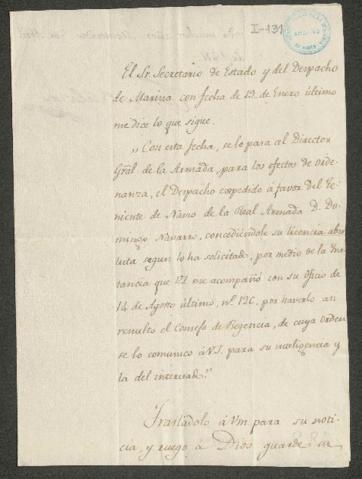 I-131
El Sr. Secretario de Estado y del Despacho
de Marina con fecha de 19. de Enero último
me dice lo que sigue.
"Con esta fecha, se lo para al Director
Gral de la Armada, para los efectos de Orde-
nanza, el Despacho expedido à favor del Te-
niente de Navio de la Real Armada D. Do-
mingo Navarro, concediéndole su licencia abso-
luta segun lo ha solicitado, por medio de la Ins-
tancia que VS. me acompañó con su Oficio de
14 de Agosto último, nº. 126, por haverlo así
resuelto el Consejo de Regencia, de cuya orden
se lo comunico à V.S. para su inteligencia y
la del interesado."
Trasládolo à Vm. para su noti-
cia, y ruego à Dios guarde su